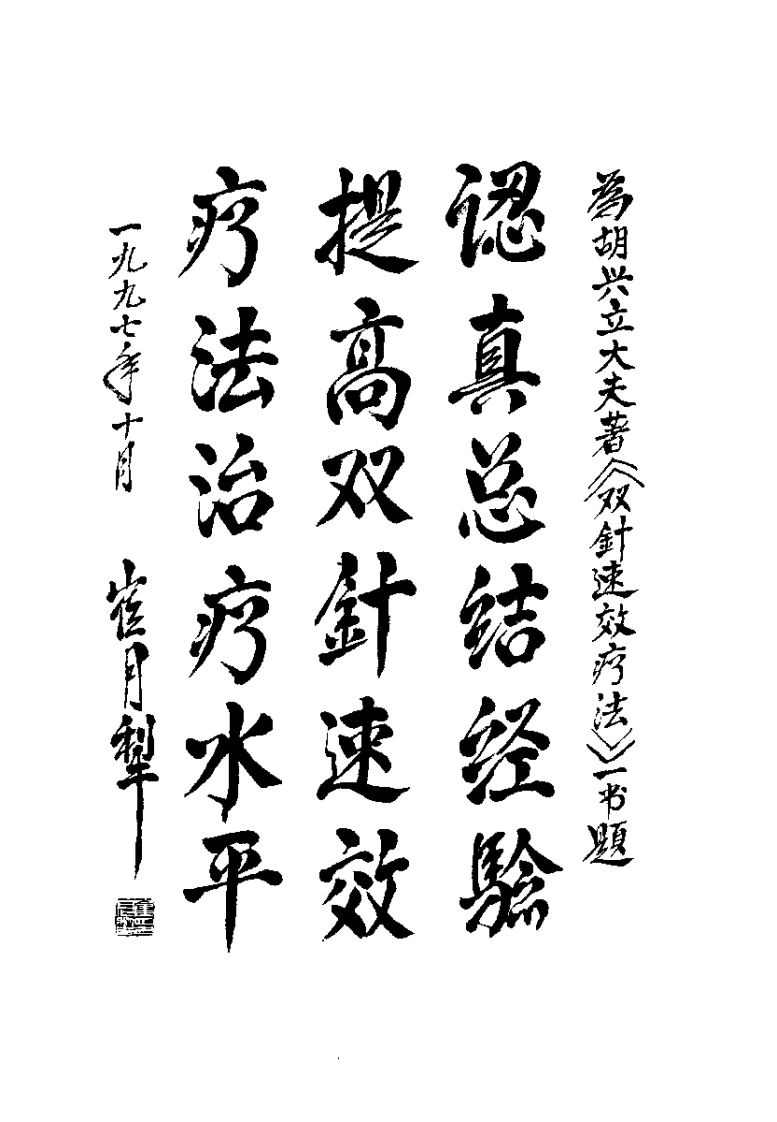 為胡兴立大夫著《双針速效疗法》一书題
認真总结经驗
提高双針速效
疗法治疗水平
一九九七年十月 崔月犁